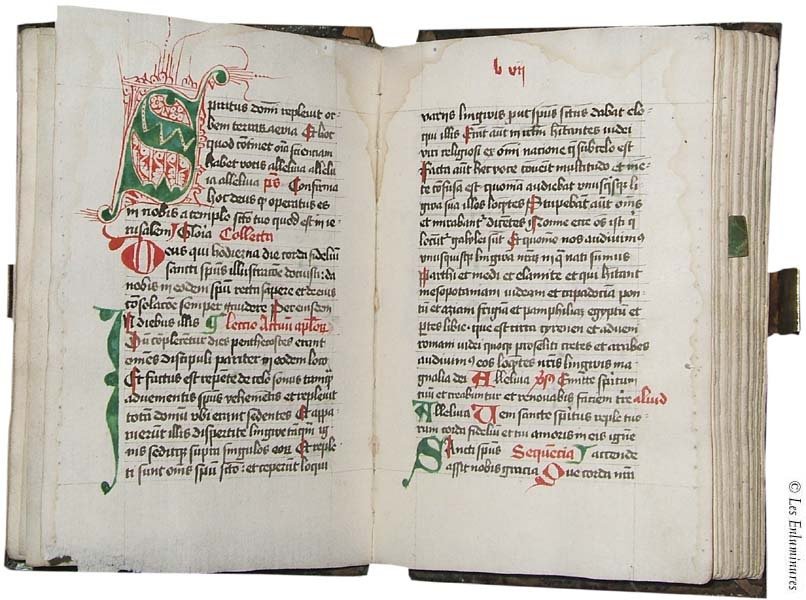 Spiritus domī repleuit or-
bem terraꝝ aeuia Et hoc
quod cōtinet oīa scienciam
habet vocis alleluia allelu-
ia alleluia ps Confirma
hoc deus qͥ operatus es
in nobis a templo scͦo tuo quod est in ie-
rusalem Gloia Collecta
Deus qui hodierna die corda fideliū
sancti spūs illustracōe docuisti: da
nobis in eodem spū recta sapere et de eius
cōsolacōe semper gaudere Per eundem
In diebus illis Leccio Actuū aplōꝝ
Dū cōplerētur dies penthecostes erant
omēs discipuli pariter in eodem loco
Et factus est repēte de celo sonus tamqͣ
aduenientis spūs vehemētis et repleuit
totā domū vbi erāt sedentes Et appa-
ruerūt illis dispertite ligwe tāqͣ ig-
nis seditqꝫ supra singulos eoꝝ Et reple-
ti sunt omēs spū scō: et ceperūt loqui
l vii
varijs lingwis put spūs sctūs dabat elo-
qui illis Erāt aūt in irlm hitantes iudei
viri religiosi ex omī nacione q̄ sub celo est
Facta aūt hec voce cōuenit multitudo et mē-
te cōfusa est quoniā audiebat vnusqͥsqꝫ li-
gwa sua illos loqͤtes Stupebāt aūt omēs
et mirabantʳ dicētes Nonne ecce oēs isti qͥ
locūtʳ galylei sūt Et quomō nos audiuimꝰ
vnusquisqꝫ lingwa nrā in qͣ nati sumus
Parthi et medi et elamite et qui hitant
mesopotamiam iudeam et capadociam pon-
tū et asiam frigiā et pamphiliā egyptū et
ptes libie que est circa cyrenen et aduene
romani iudei quoqꝫ proseliti cretes et arabes
audiuimꝰ eos loqͤtes nrīs lingwis ma-
gnalia dei Alleluia vs Emitte spiritum
tuū et creabuntur et renouabis faciem terre aliud
Alleluia Veni sancte spiritus reple tuo-
rum corda fideliū et tui amoris in eis ignē
Sancti spūs Sequēcia accende
assit nobis gracia Que corda nrā
© Les Enluminures